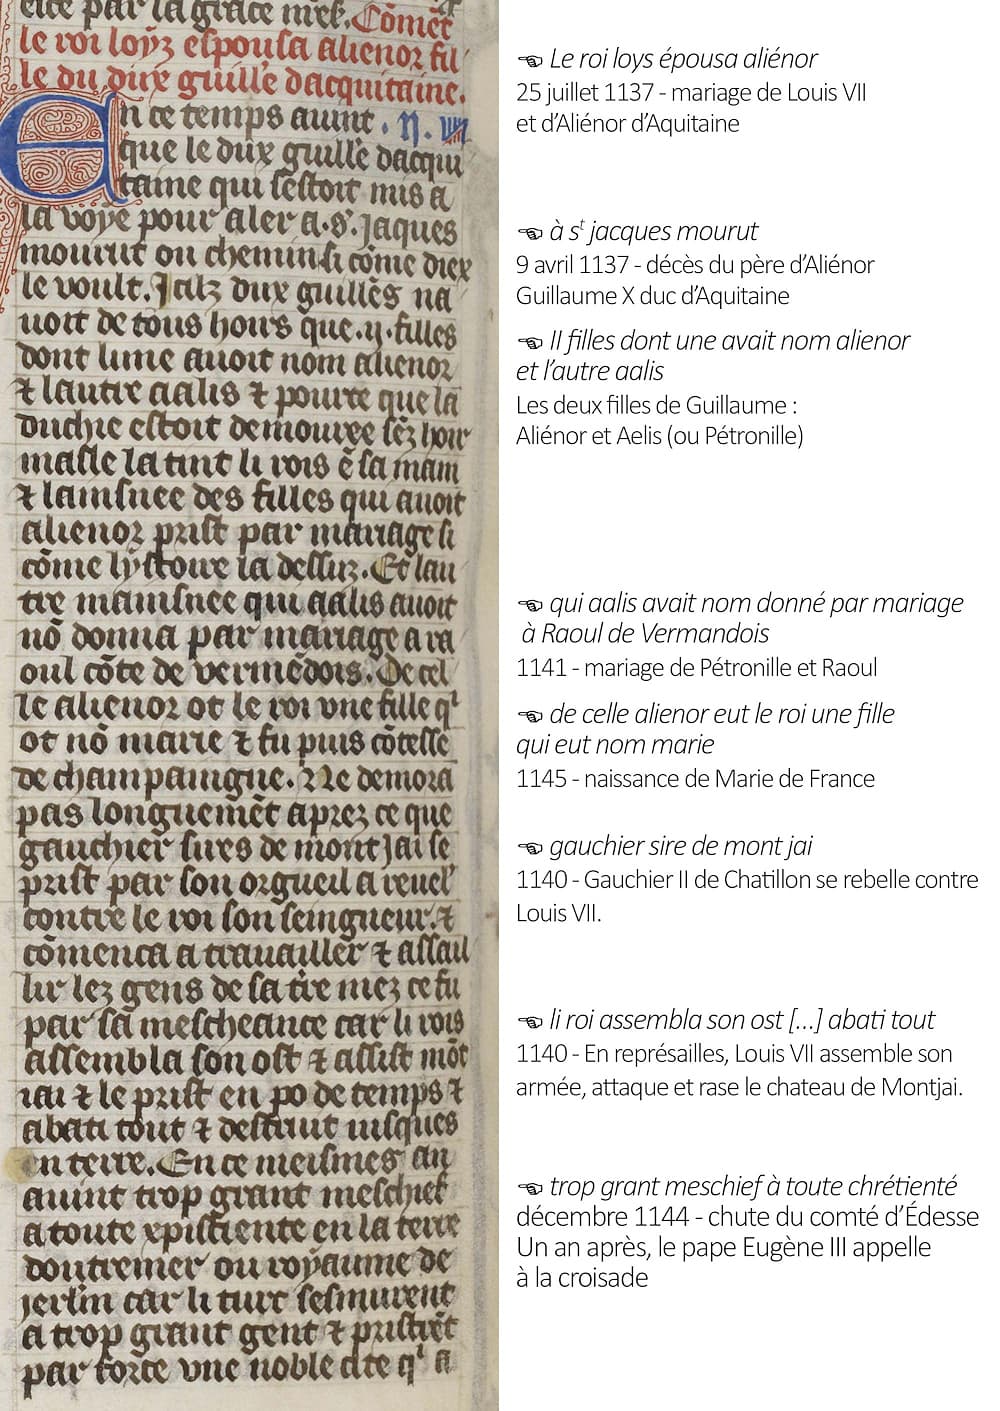 este par la grace
Cõmēt
le roi loÿz espousa alienor fil
le du dux guille dacquitaine.
En ce temps auint .
que le dux guille dacqui
taine qui sestoit mis a
la voÿe pour aler a.s'. Jaques
mourut ou chemin si cõme diex
le voult. Jcilz dux guilles na
uoit de tous hours que .ij. filles
dont lune auoit nom alienor
⁊ lautre aalis ⁊ pource que la
duchie estoit demouree sēz hoir
masle la tint li rois ē sa main
⁊ lainsnee des filles qui auoit
alienor prist par mariage si
cõme lÿstoire la dessuz. Et lau
tre mainsnee qui aalis auoit
nõ donna par mariage a ra
oul cõte de vermēdois. De cel
le alienor ot le roi vne fille qⁱ
ot nõ marie ⁊ fu puis cõtesse
de champaingne. Ne demora
pas longuemēt aprez ce que
gauchier sires de mont jai se
prist par son orgueil a reuel'
contre le roi son seingneur. ⁊
cõmenca a trauaillier ⁊ assail
lir lez gens de sa t're mez ce fu
par sa mescheance car li rois
assembla son ost ⁊ assist mõt
iai ⁊ le prist en po de temps ⁊
abati tout ⁊ destruit iusques
en terre. En ce meismes an
auint trop grant meschief
a toute xpistiente en la terre
doutremer ou roÿaume de
jerl'm car li turc sesmurent
a trop grant gent ⁊ pristrēt
par force vne noble cite qⁱ a
☜ Le roi loys épousa aliénor
25 juillet 1137 - mariage de Louis VII
et d'Aliénor d'Aquitaine
☜ à sᵗ jacques mourut
9 avril 1137 - décès du père d'Aliénor
Guillaume X duc d'Aquitaine
☜ II filles dont une avait nom alienor
et l'autre aalis
Les deux filles de Guillaume :
Aliénor et Aelis (ou Pétronille)
☜ qui aalis avait nom donné par mariage
à Raoul de Vermandois
1141 - mariage de Pétronille et Raoul
☜ de celle alienor eut le roi une fille
qui eut nom marie
1145 - naissance de Marie de France
☜ gauchier sire de mont jai
1140 - Gauchier II de Chatillon se rebelle contre
Louis VII.
☜ li roi assembla son ost [...] abati tout
1140 - En représailles, Louis VII assemble son
armée, attaque et rase le chateau de Montjai.
☜ trop grant meschief à toute chrétienté
décembre 1144 - chute du comté d'Édesse
Un an après, le pape Eugène III appelle
à la croisade